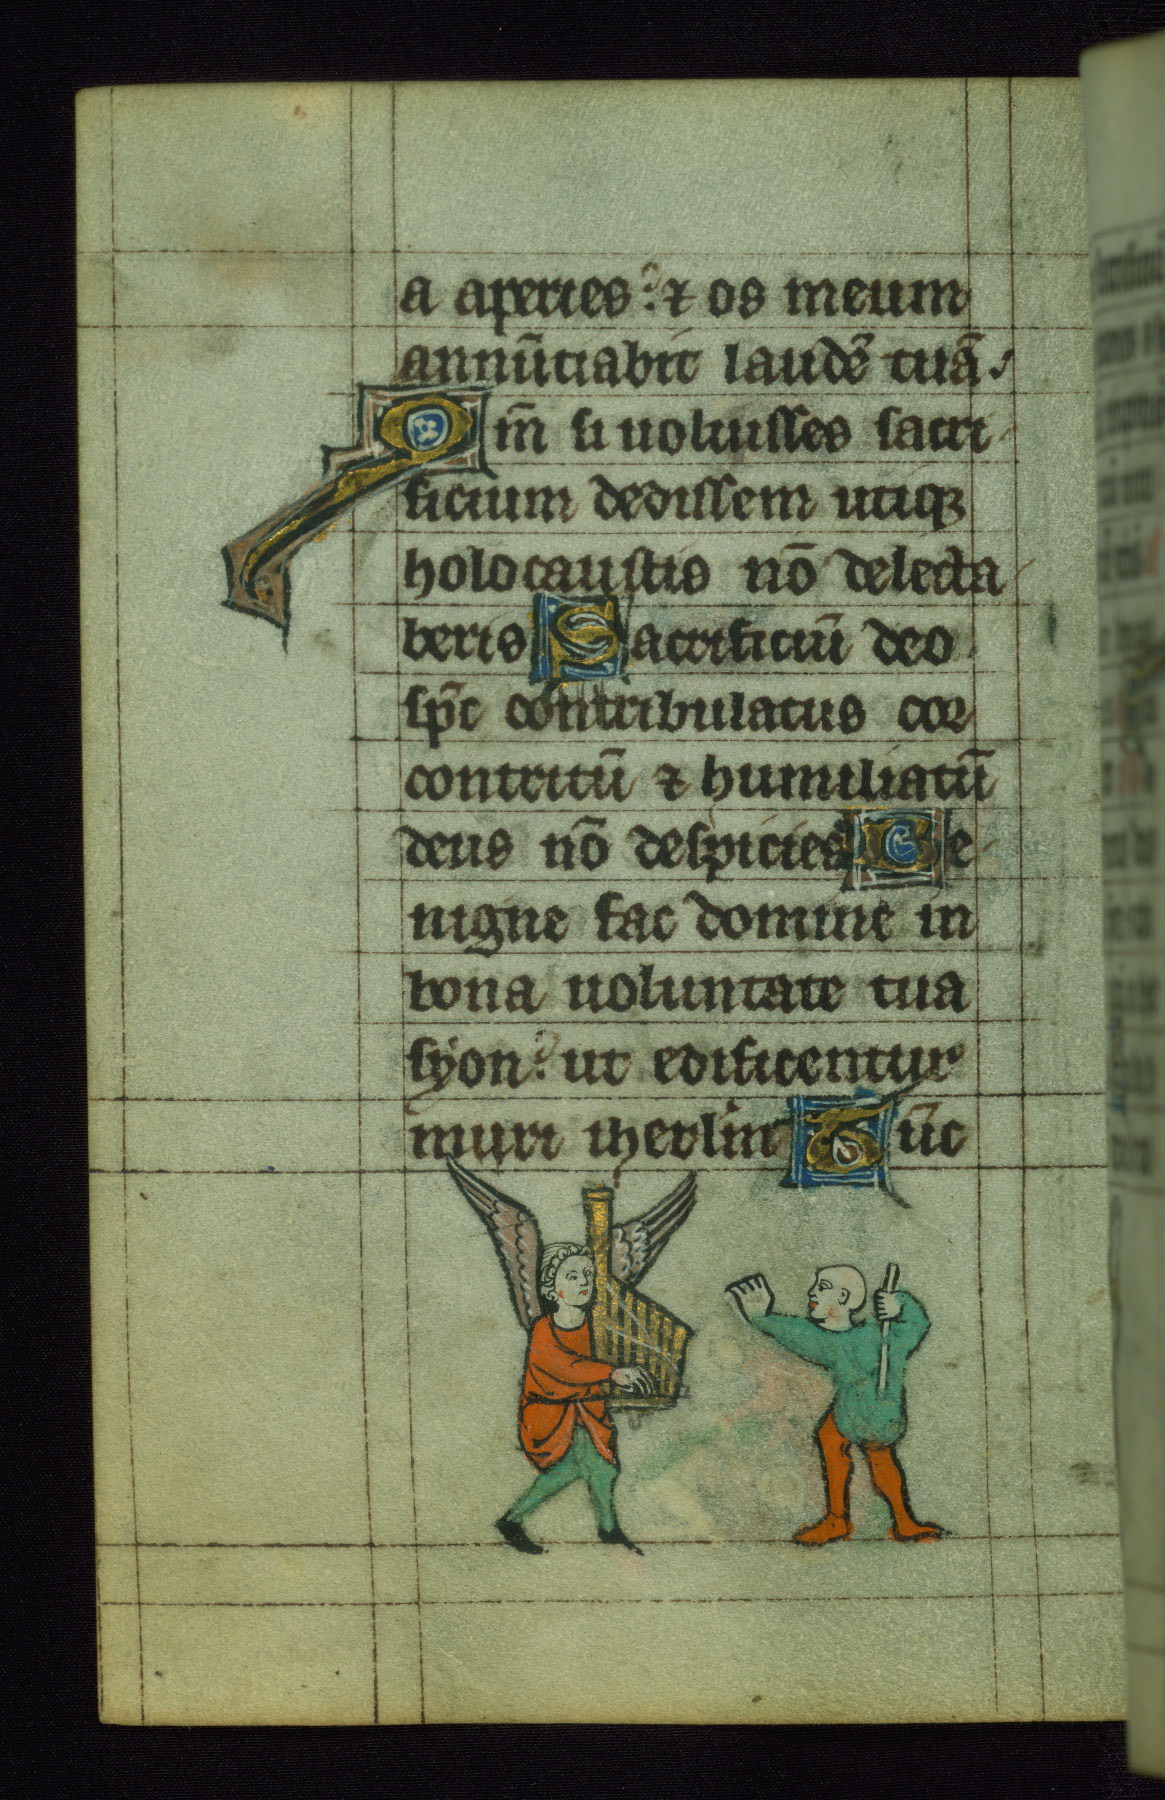 a aperies: ⁊ os meum
annūciabit laudē tuā.
Qm̄ si uoluisses sacri
ficium dedissem utiqꝫ
holocaustis nō delecta
beris Sacrificiū deo
sp̄c contribulatus cor
contritū ⁊ humiliatū
deus nō despicies Be
nigne fac domine in
bona uoluntate tua
syon: ut edificentur
muri iherlm̄ Tūc